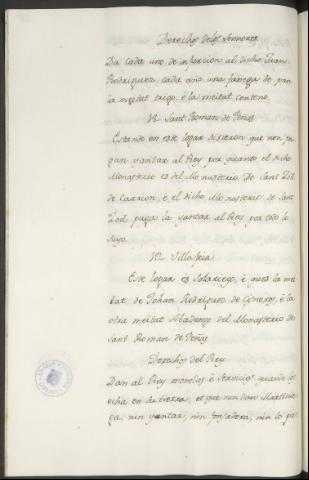 Derechos delos Sennores
Da cada uno de infurcion al dicho Juan
Rodriguez cada año una fanega de pan
la meitat trigo, è la meitat centeno.
Sant Roman de Peñas
Estando en este logar dixieron que non pa-
gan yantar al Rey por quanto el dicho
Monasterio es del Monasterio de Sant Zoil
de Carrion, è el dicho Monasterio de Sant
Zoil paga la yantar al Rey por todo lo
suyo.
Villafria
Este logar es solariego, è que es la mei
tat de Johan Rodriguez de Cisneros, è la
otra meitat Abadengo del Monasterio de
Sant Roman de Peñas
Derechos del Rey
Dan al Rey monedas è servicios quando lo
echa en la tierra, et que non dan Martinie
ga, nin yantar, nin fonsadera, nin lo pa